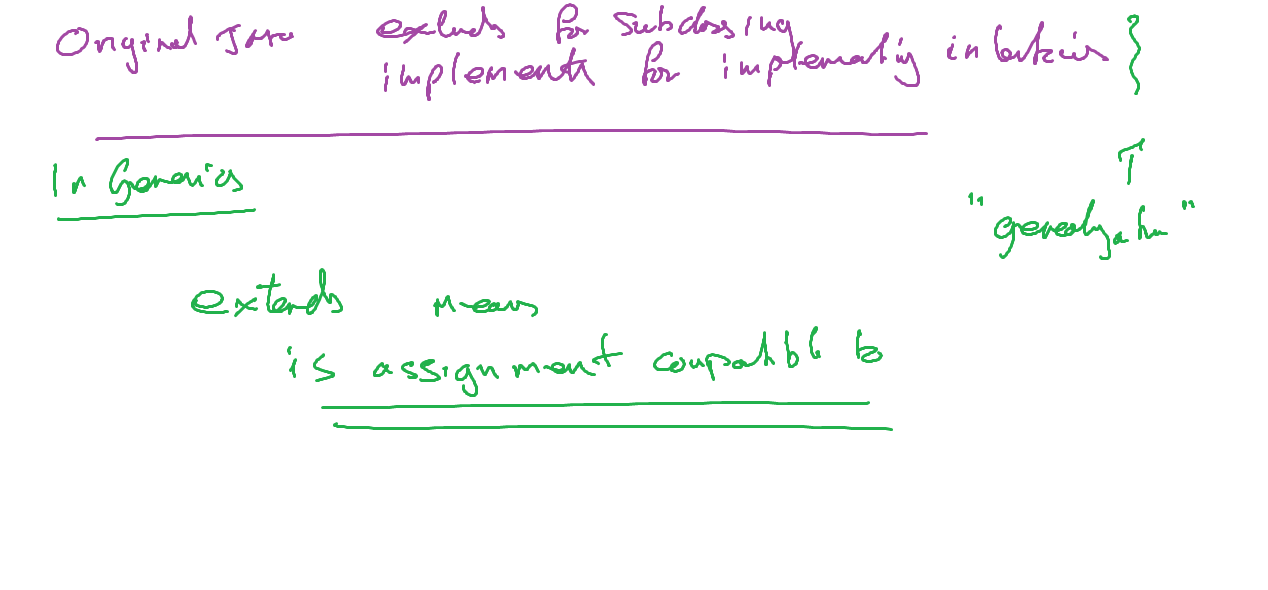 Original Java extends for subclassing
implements for implementing interfaces }
In Generics
"generalization"
extends means
is assignment compatible to